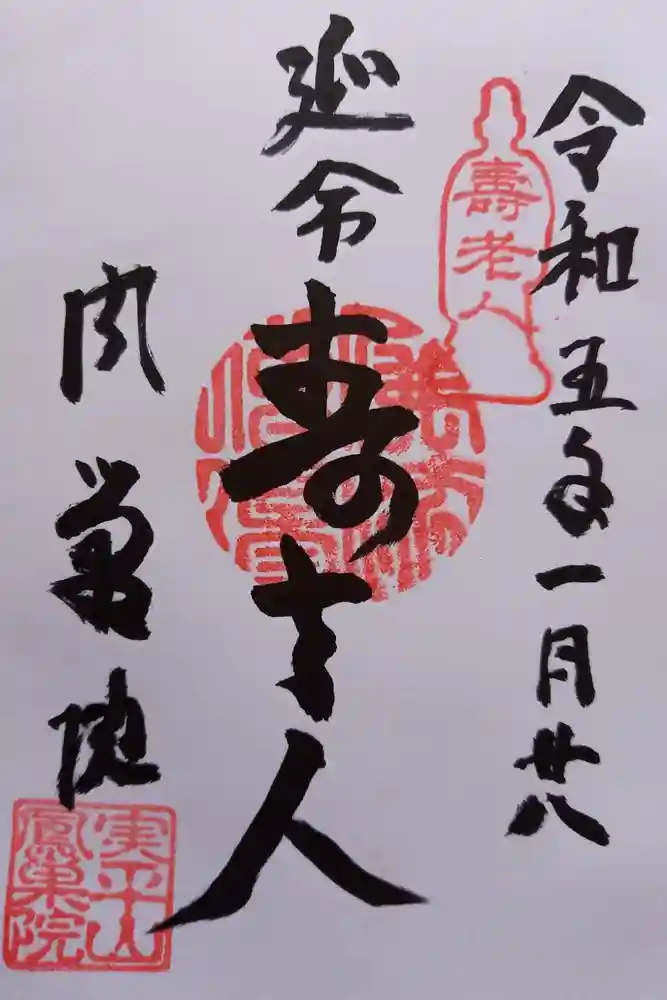 令和五年一月廿八
壽老人
延命
寿老人
鳳巣院
実平山
鳳巣院